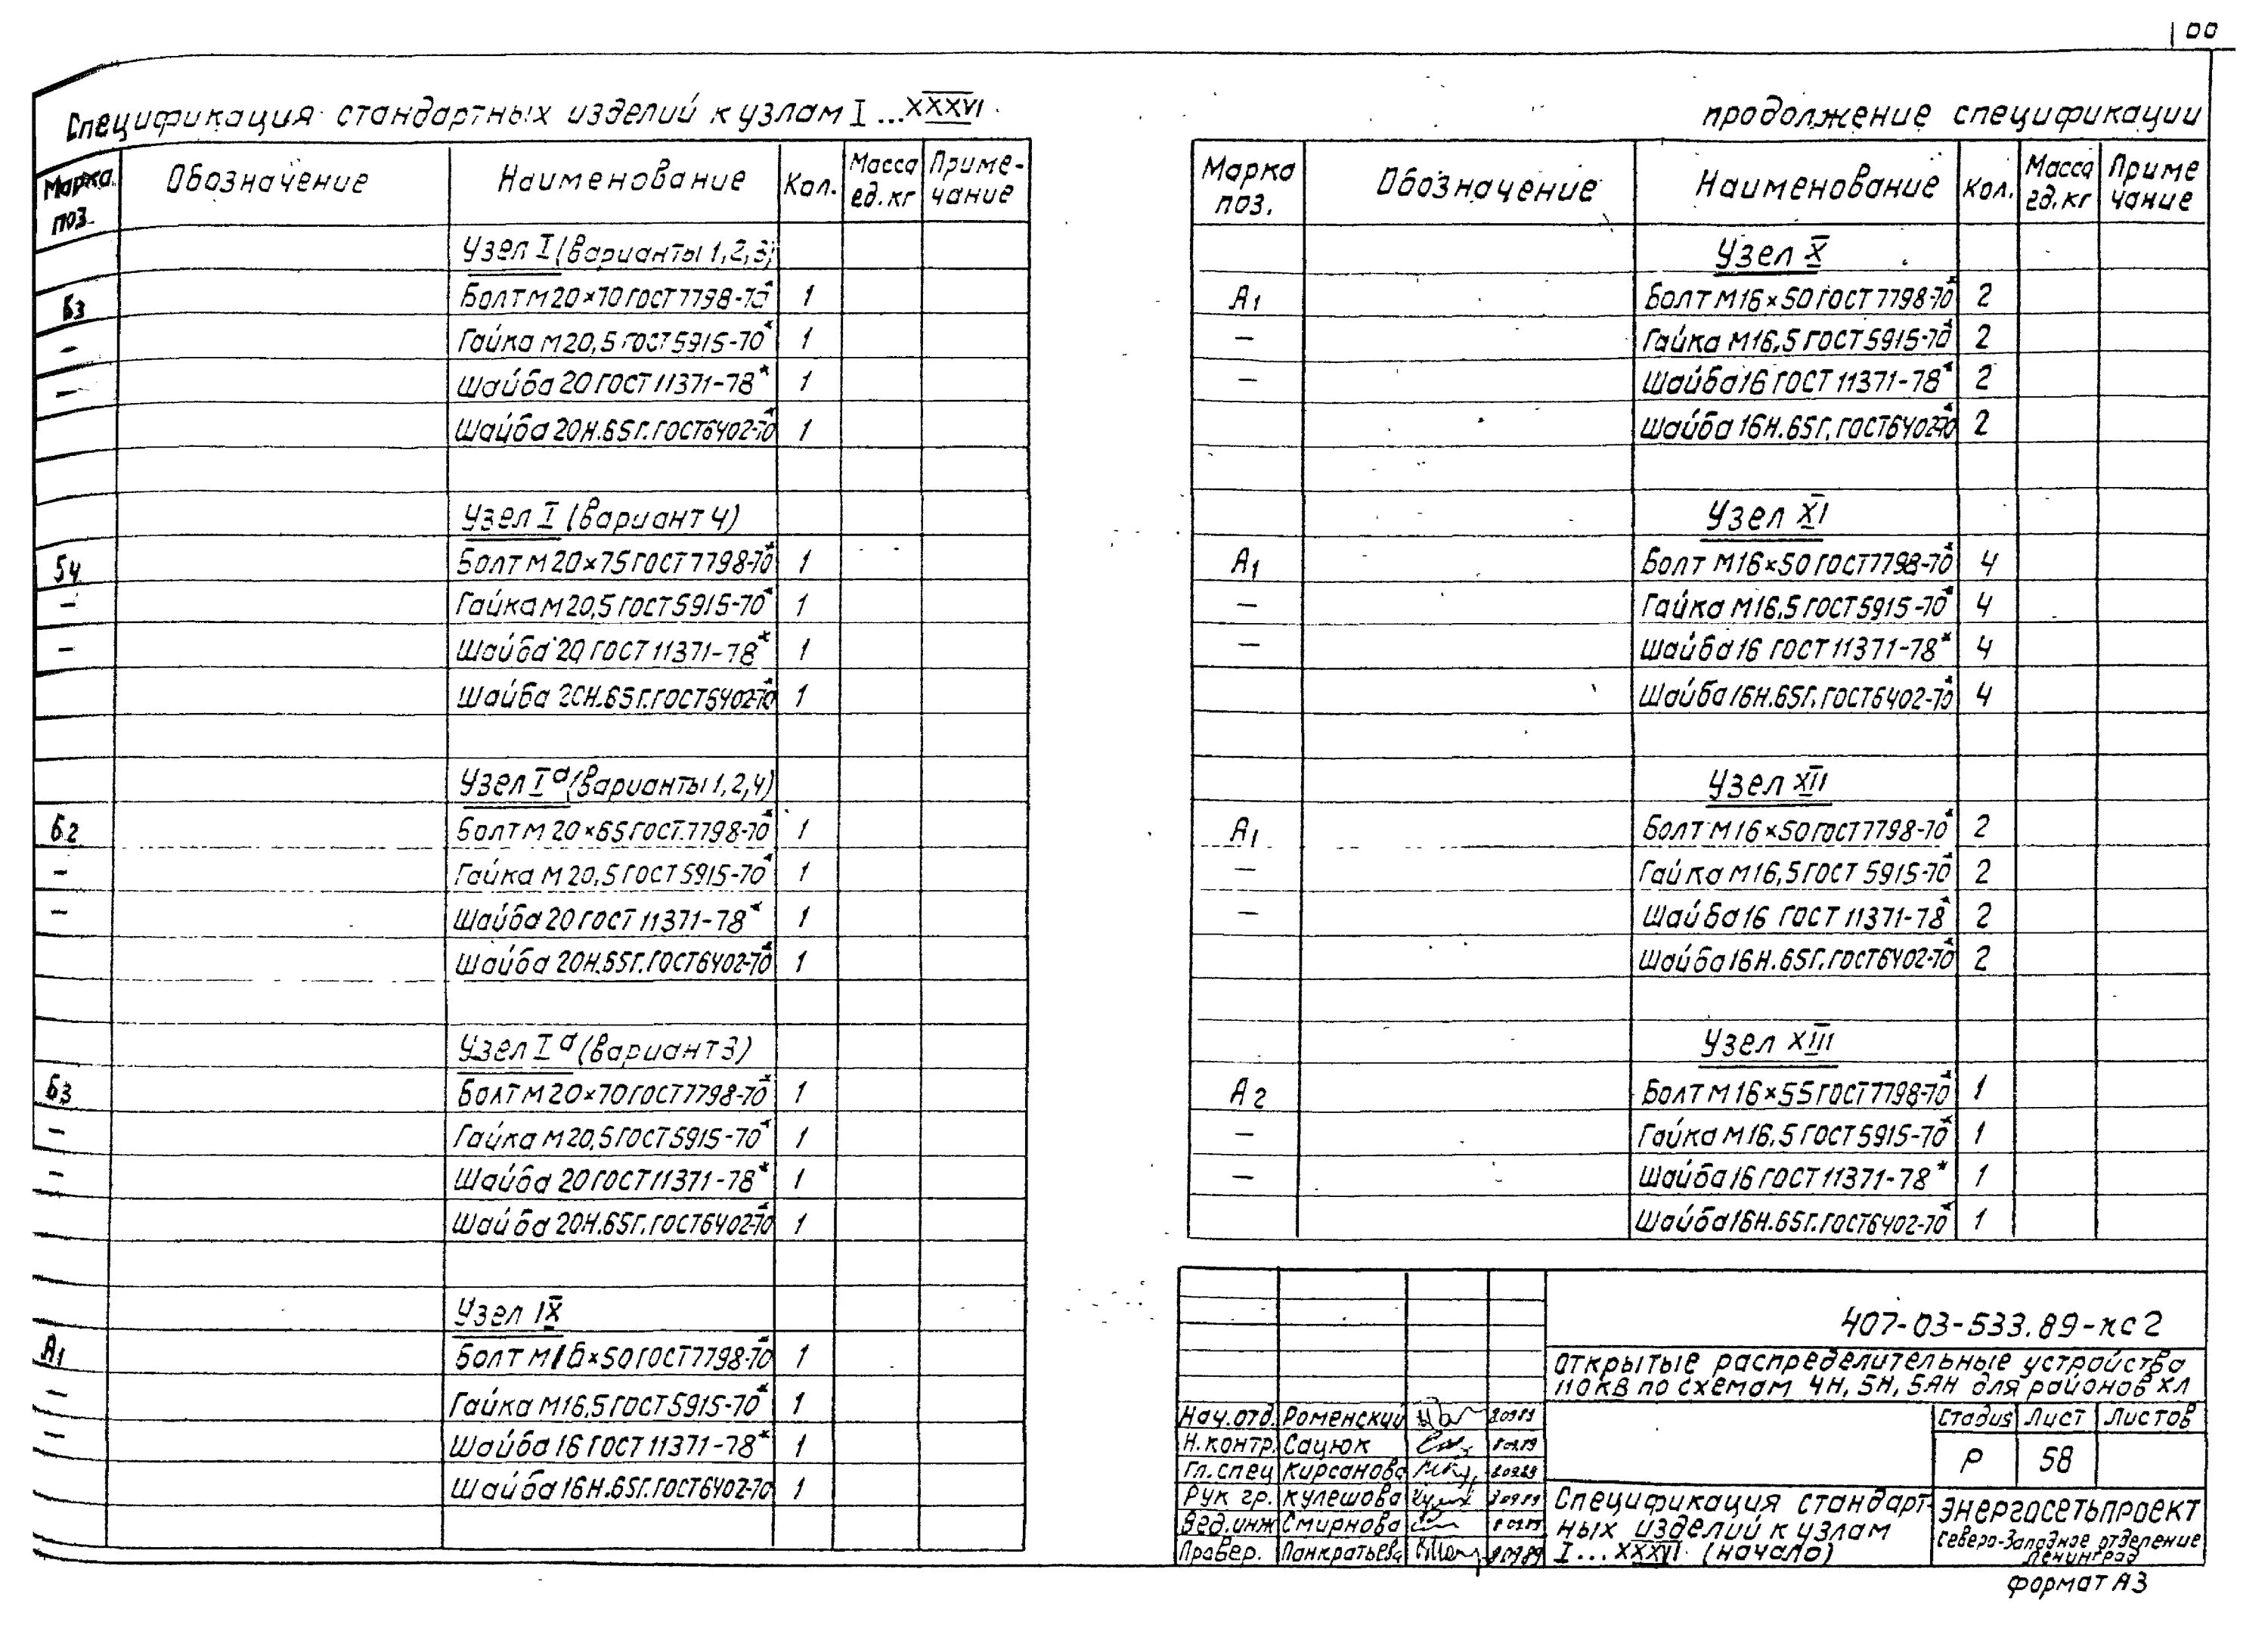 100
Спецификация стандартных изделий к узлам I...XXXVI
Марка поз. Обозначение Наименование Кол. Масса ед. кг Приме-чание
Узел I (варианты 1,2,3)
Б3 Болт М20×70 ГОСТ 7798-70* 1
— Гайка М20,5 ГОСТ 5915-70* 1
— Шайба 20 ГОСТ 11371-78* 1
Шайба 20Н.65Г. ГОСТ 6402-70* 1
Узел I (вариант 4)
Б4 Болт М20×75 ГОСТ 7798-70* 1
— Гайка М20,5 ГОСТ 5915-70* 1
— Шайба 20 ГОСТ 11371-78* 1
Шайба 20Н.65Г. ГОСТ 6402-70* 1
Узел Iа (варианты 1,2,4)
Б2 Болт М20×65 ГОСТ 7798-70* 1
— Гайка М20,5 ГОСТ 5915-70* 1
— Шайба 20 ГОСТ 11371-78* 1
Шайба 20Н.65Г. ГОСТ 6402-70* 1
Узел Iа (вариант 3)
Б3 Болт М20×70 ГОСТ 7798-70* 1
— Гайка М20,5 ГОСТ 5915-70* 1
— Шайба 20 ГОСТ 11371-78* 1
Шайба 20Н.65Г. ГОСТ 6402-70* 1
Узел IX
А1 Болт М16×50 ГОСТ 7798-70* 1
— Гайка М16,5 ГОСТ 5915-70* 1
— Шайба 16 ГОСТ 11371-78* 1
Шайба 16Н.65Г. ГОСТ 6402-70 1
продолжение спецификации
Марка поз. Обозначение Наименование Кол. Масса ед. кг Приме чание
Узел X
А1 Болт М16×50 ГОСТ 7798-70* 2
— Гайка М16,5 ГОСТ 5915-70* 2
— Шайба 16 ГОСТ 11371-78* 2
Шайба 16Н.65Г. ГОСТ 6402-70* 2
Узел XI
А1 Болт М16×50 ГОСТ 7798-70* 4
— Гайка М16,5 ГОСТ 5915-70* 4
— Шайба 16 ГОСТ 11371-78* 4
Шайба 16Н.65Г. ГОСТ 6402-70* 4
Узел XII
А1 Болт М16×50 ГОСТ 7798-70* 2
— Гайка М16,5 ГОСТ 5915-70* 2
— Шайба 16 ГОСТ 11371-78* 2
Шайба 16Н.65Г. ГОСТ 6402-70* 2
Узел XIII
А2 Болт М16×55 ГОСТ 7798-70* 1
— Гайка М16,5 ГОСТ 5915-70* 1
— Шайба 16 ГОСТ 11371-78* 1
Шайба 16Н.65Г. ГОСТ 6402-70* 1
407-03-533.89-КС2
Открытые распределительные устройства
110 кВ по схемам 4Н, 5Н, 5АН для районов ХЛ
Нач. отд. Роменский
Н. контр. Сацюк
Гл. спец Кирсанова
Рук гр. Кулешова
Вед. инж Смирнова
Провер. Панкратьева
Стадия Лист Листов
Р 58
Спецификация стандарт-
ных изделий к узлам
I...XXXVI (начало)
ЭНЕРГОСЕТЬПРОЕКТ
Северо-Западное отделение
Ленинград
Формат А3